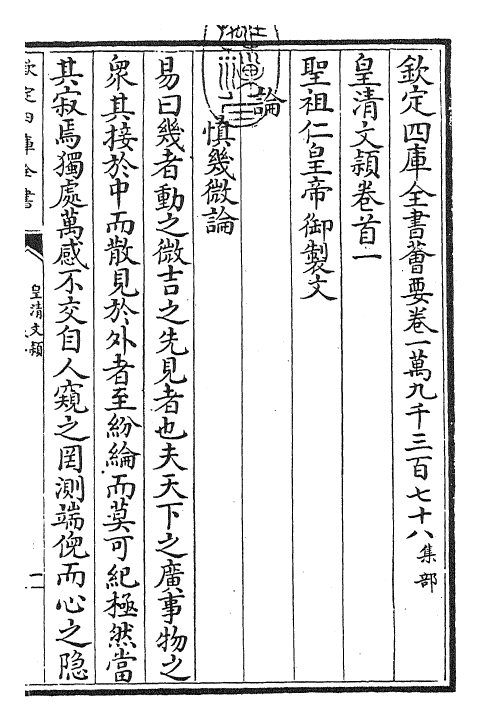 欽定四庫全書薈要卷一萬九千三百七十八集部
皇清文頴卷首一
聖祖仁皇帝御製文
論
慎幾微論
易曰幾者動之微吉之先見者也夫天下之廣事物之
衆其接於中而散見於外者至紛綸而莫可紀極然當
其寂焉獨處萬感不交自人窺之罔測端倪而心之隐
欽定四庫全書
皇清文頴